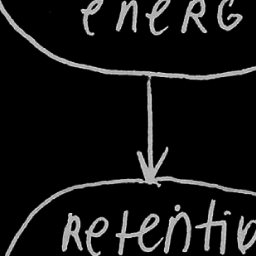 eneRG
Retentiv